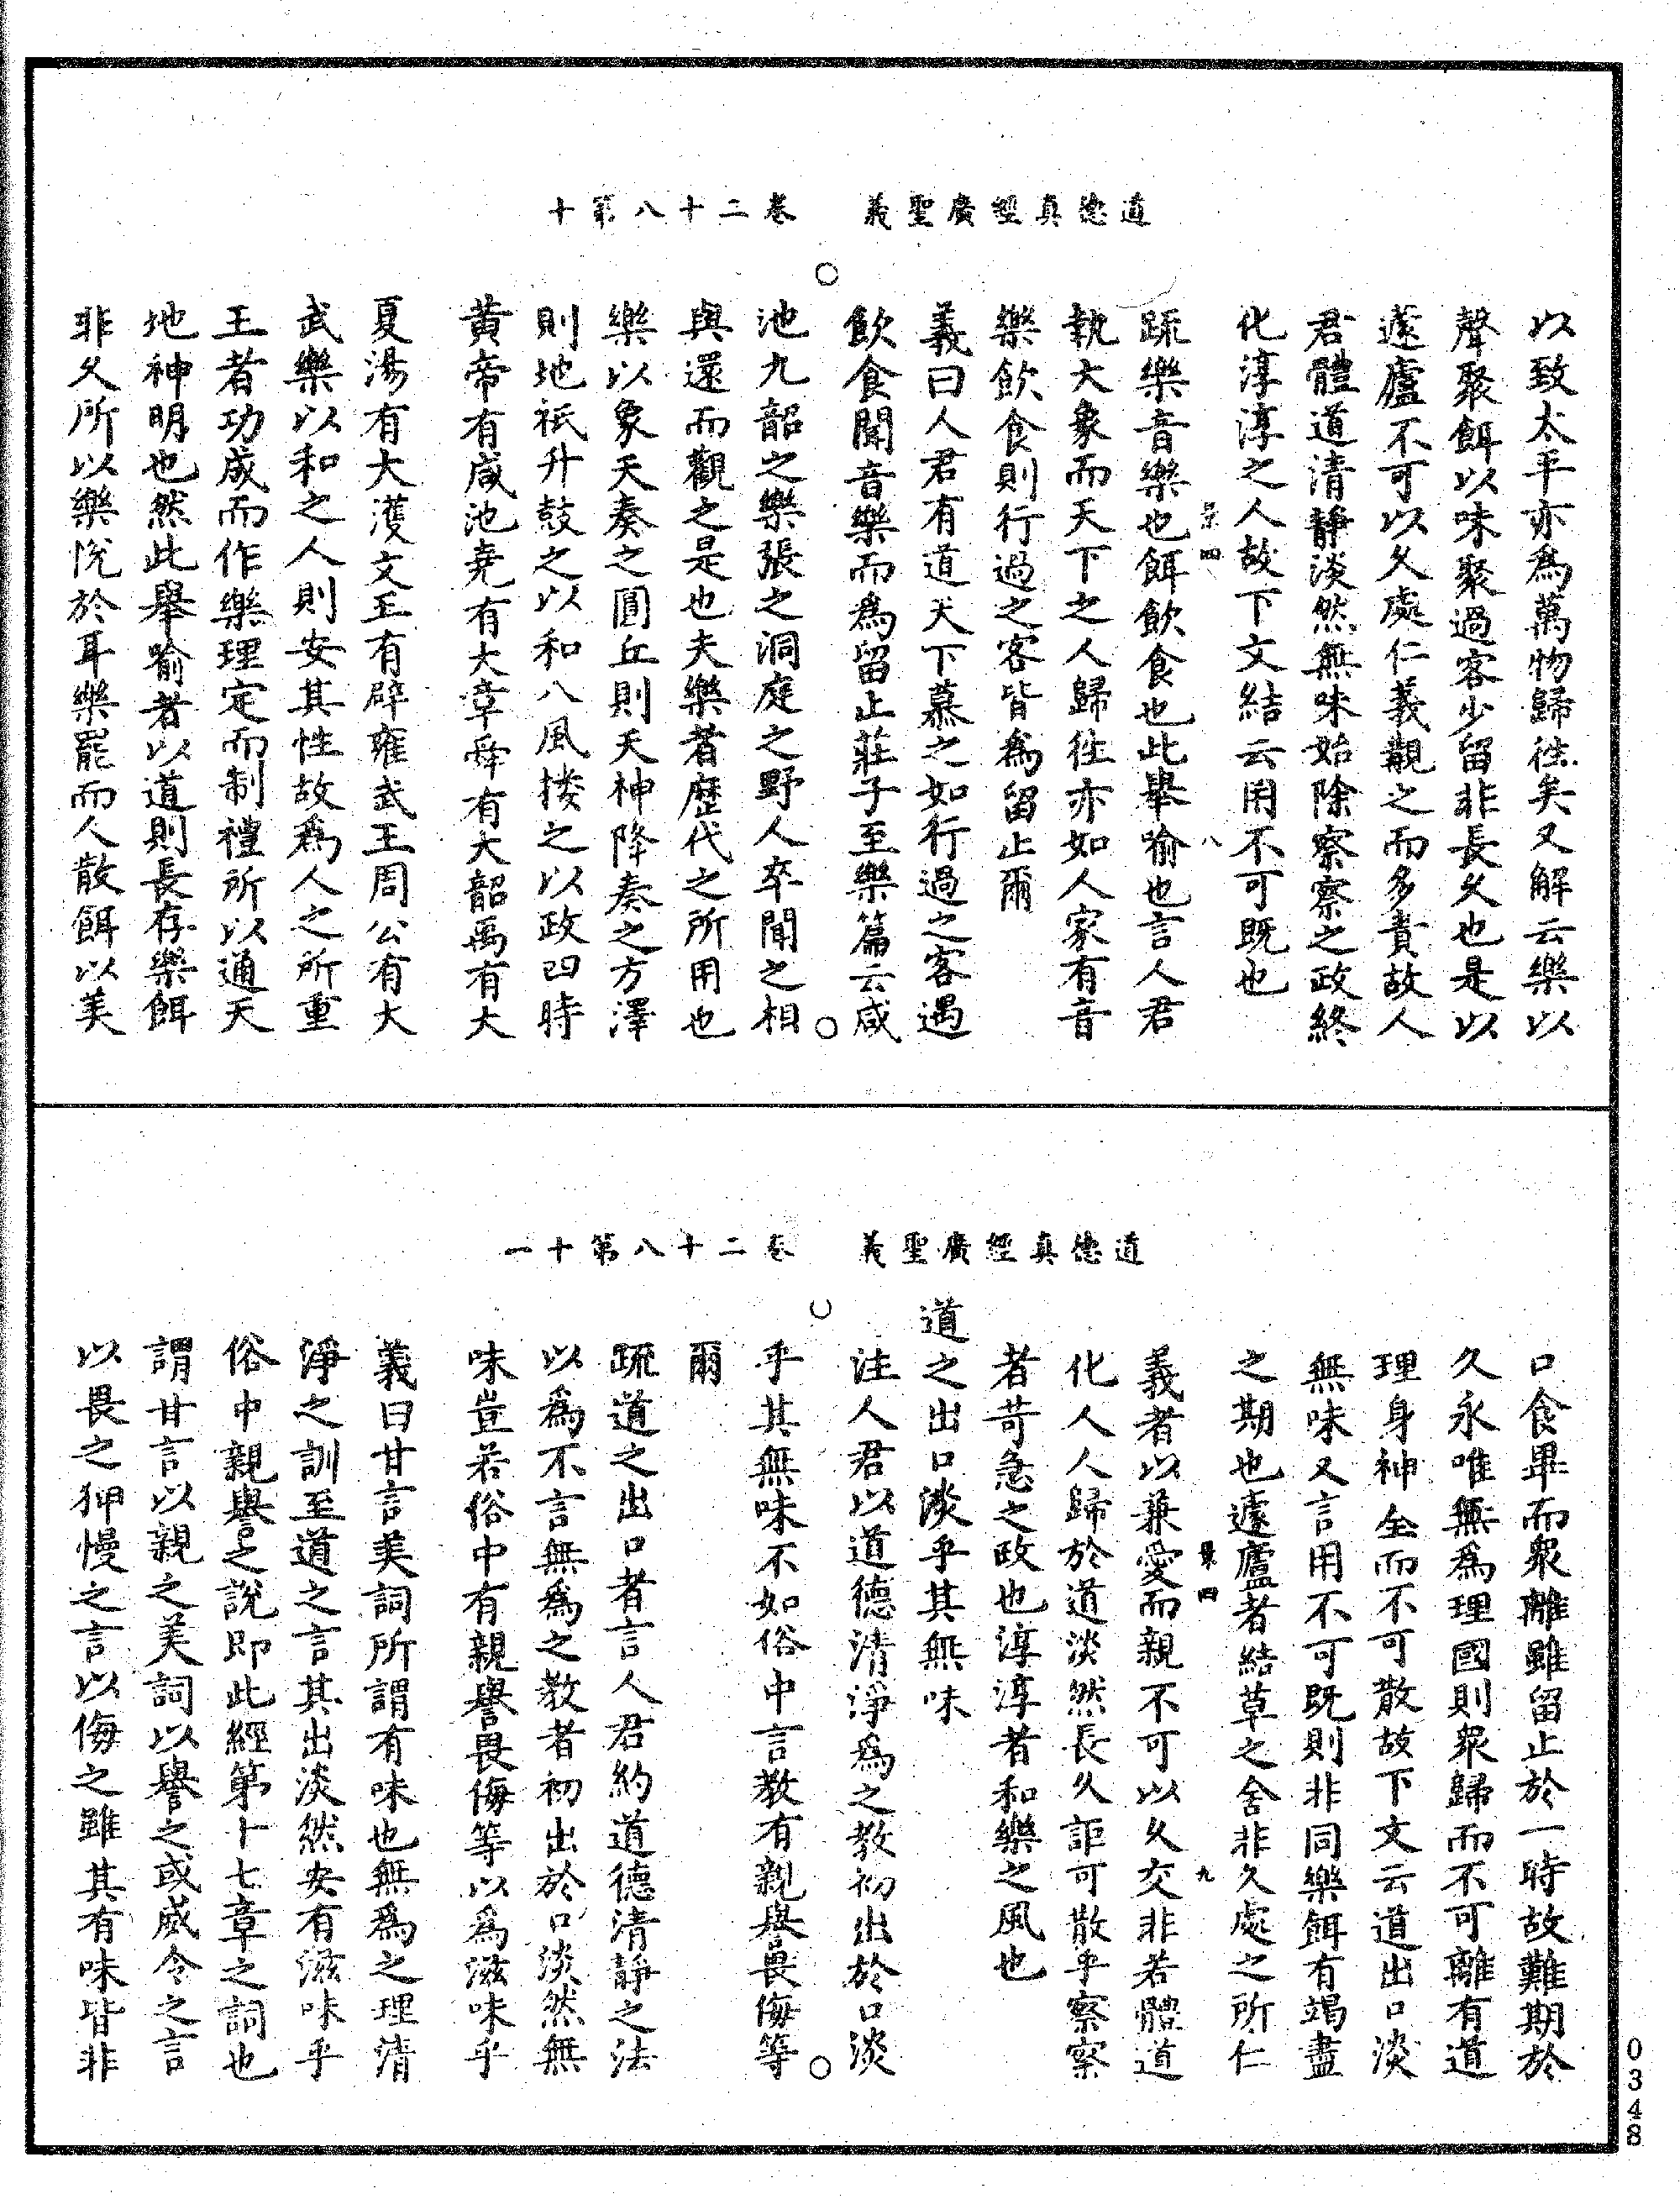 道德真經廣聖義　卷二十八第十
以致太平亦為萬物歸往矣又解云樂以
聲聚餌以味聚過客少留非長久也是以
遽廬不可以久處仁義覯之而多責故人
君體道清靜淡然無味始除察察之政終
化淳淳之人故下文結云用不可既也
景四　八
疏樂音樂也餌飲食也此舉喻也言人君
執大象而天下之人歸往亦如人家有音
樂飲食則行過之客皆為留止爾
義曰人君有道天下慕之如行過之客遇
飲食聞音樂而為留止莊子至樂篇云咸
池九韶之樂張之洞庭之野人卒聞之相
與還而觀之是也夫樂者歷代之所用也
樂以象天奏之圓丘則天神降奏之方澤
則地祇升鼓之以和八風揍之以政四時
黃帝有咸池堯有大章舜有大韶禹有大
夏湯有大濩文王有辟雍武王周公有大
武樂以和之人則安其性故為人之所重
王者功成而作樂理定而制禮所以通天
地神明也然此舉喻者以道則長存樂餌
非久所以樂悅於耳樂罷而人散餌以美
道德真經廣聖義　卷二十八第十一
口食畢而眾離雖留止於一時故難期於
久永唯無為理國則眾歸而不可離有道
理身神全而不可散故下文云道出口淡
無味又言用不可既則非同樂餌有竭盡
之期也遽廬者結草之舍非久處之所仁
景四　九
義者以兼愛而親不可以久交非若體道
化人人歸於道淡然長久詎可散乎察察
者苛急之政也淳淳者和樂之風也
道之出口淡乎其無味
注人君以道德清淨為之教初出於口淡
乎其無味不如俗中言教有親譽畏侮等
爾
疏道之出口者言人君約道德清靜之法
以為不言無為之教者初出於口淡然無
味豈若俗中有親譽畏侮等以為滋味乎
義曰甘言美詞所謂有味也無為之理清
淨之訓至道之言其出淡然安有滋味乎
俗中親譽之說即此經第十七章之詞也
謂甘言以親之美詞以譽之或威令之言
以畏之狎慢之言以侮之雖其有味皆非
0348